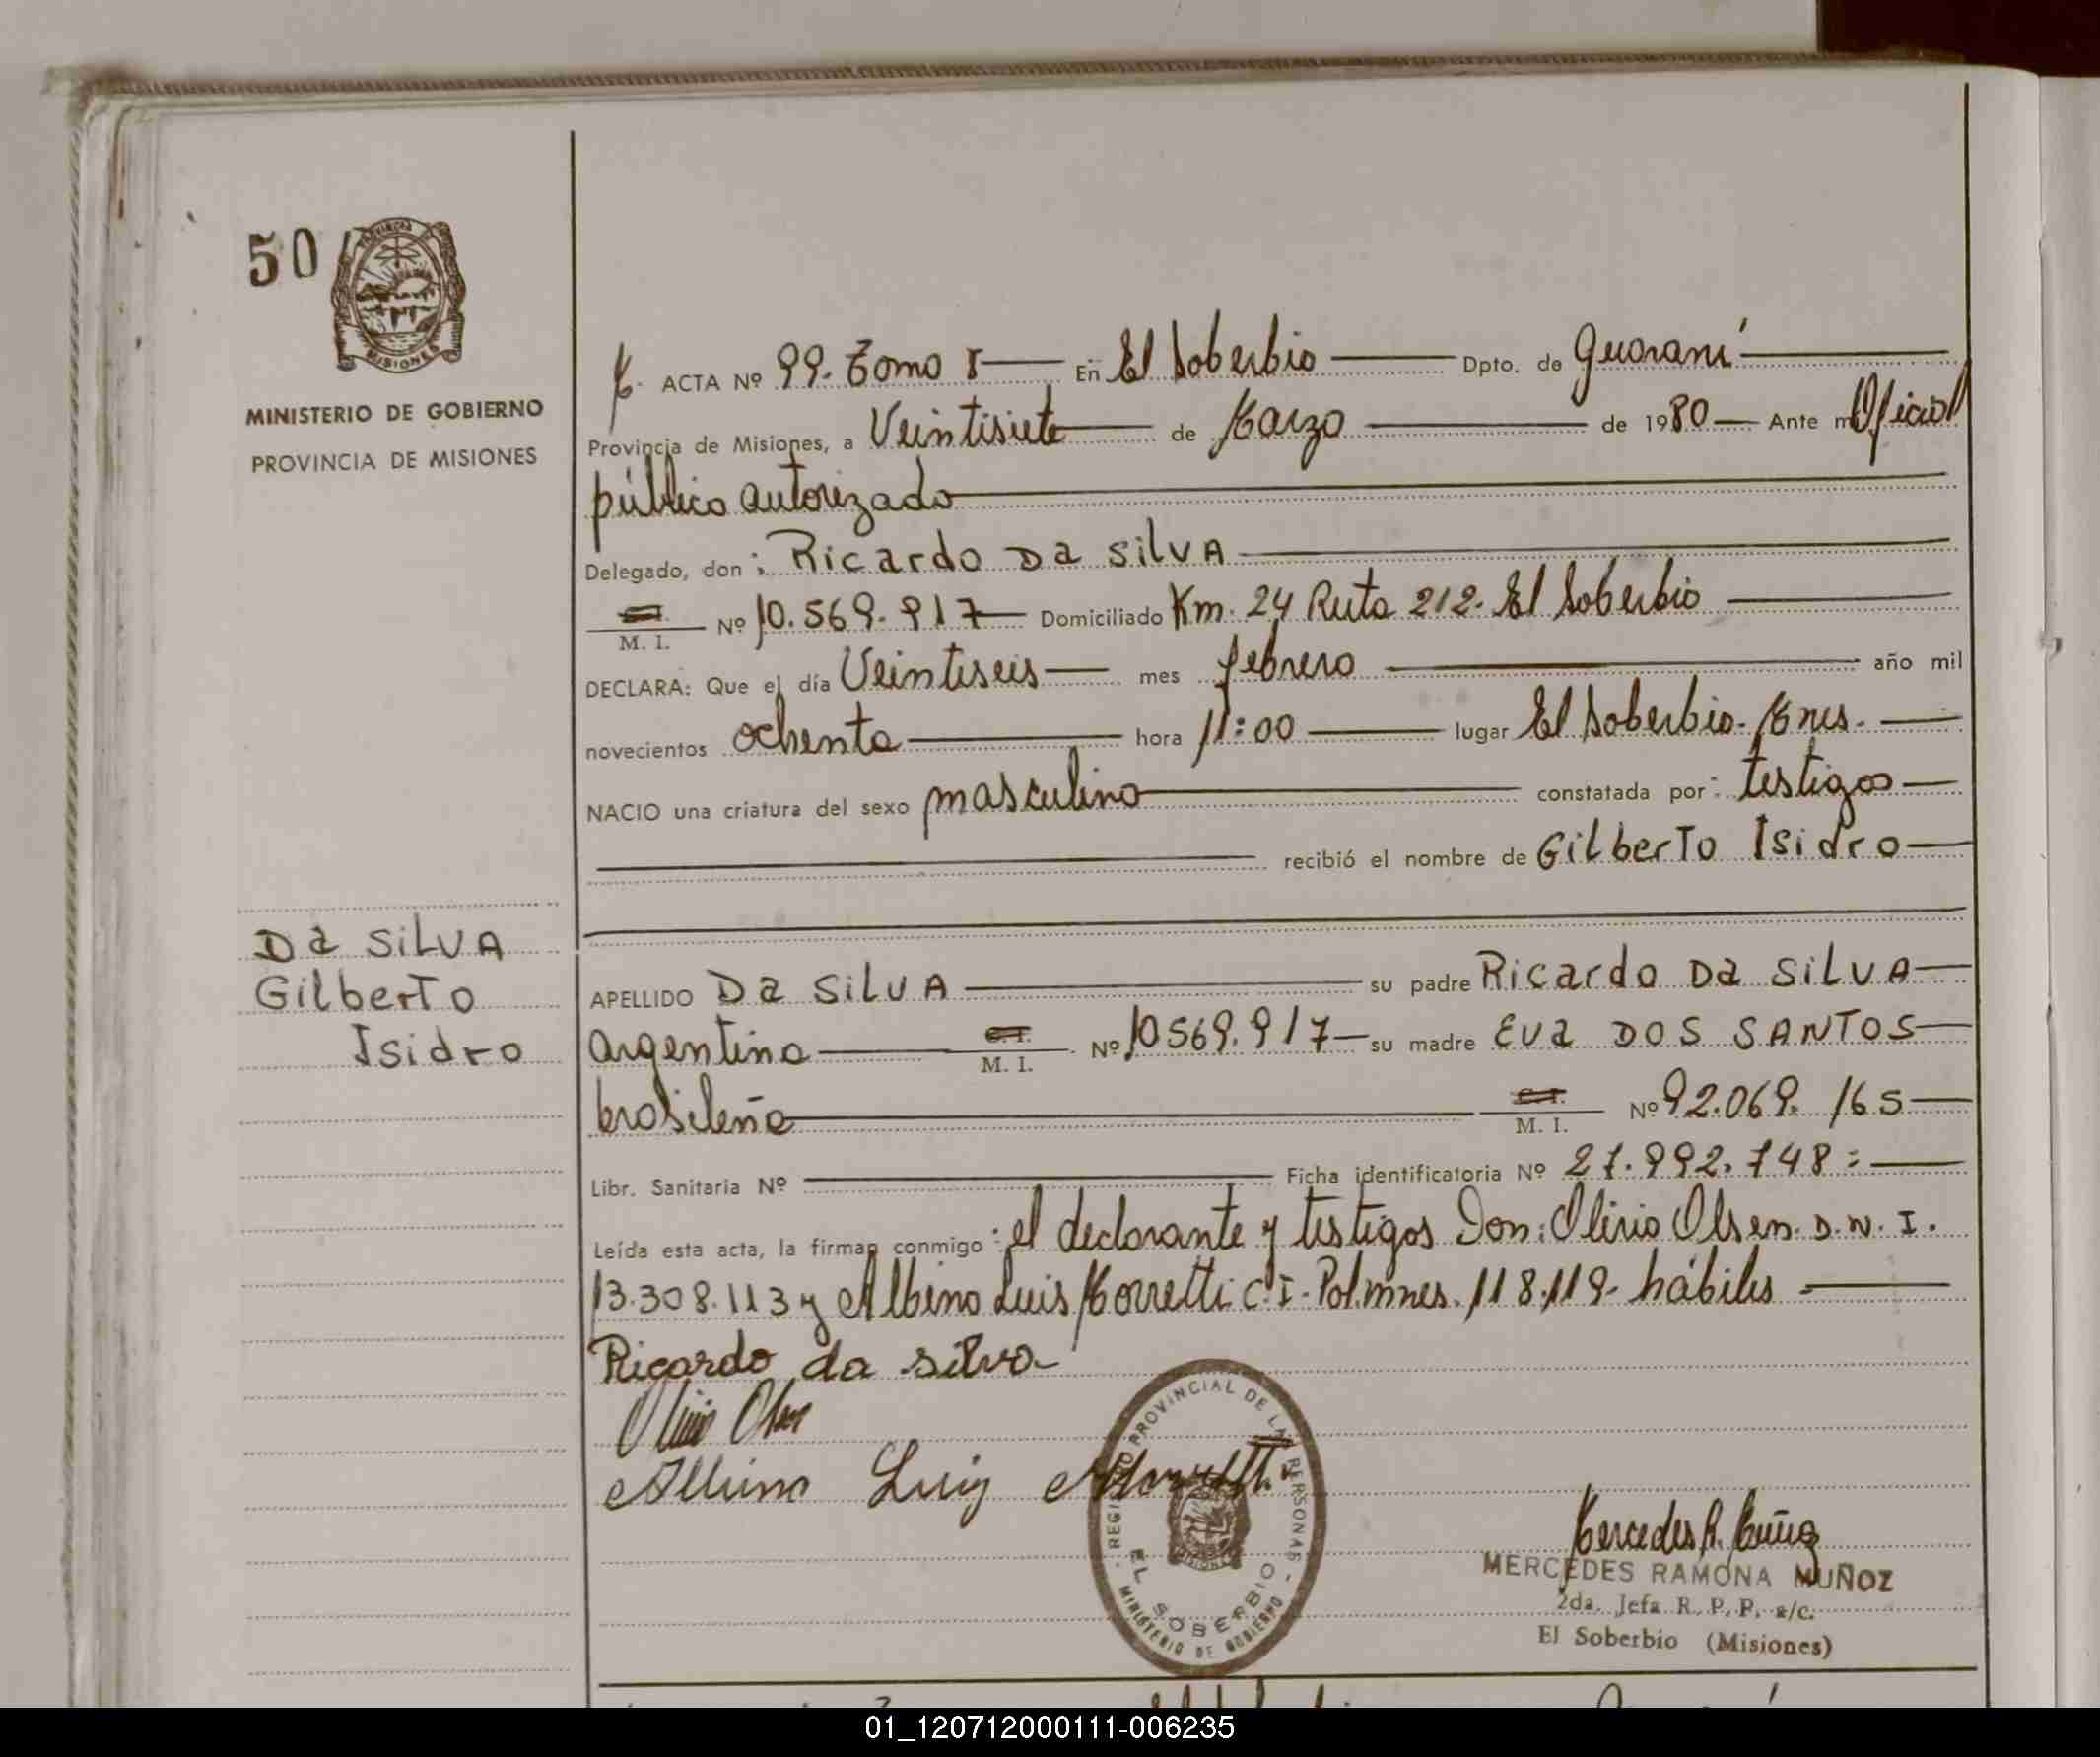 50
PROVINCIA DE
MISIONES
MINISTERIO DE GOBIERNO
PROVINCIA DE MISIONES
ACTA Nº 99. Tomo I En El Soberbio Dpto. de Guaraní
Provincia de Misiones, a Veintisiete de Marzo de 1980 Ante mi Oficial
público autorizado
Delegado, don: Ricardo Da Silva
M. I. Nº 10.569.917 Domiciliado Km. 24 Ruta 212. El Soberbio
DECLARA: Que el día Veintiseis mes febrero año mil
novecientos ochenta hora 11:00 lugar El Soberbio. Mnes.
NACIO una criatura del sexo masculino constatada por: testigos
recibió el nombre de Gilberto Isidro
Da Silva
Gilberto
Isidro
APELLIDO Da Silva su padre Ricardo Da Silva
argentino C.I. M. I. Nº 10569.917 su madre Eva DOS SANTOS
brasileña C.I. M. I. Nº 92.069.165
Libr. Sanitaria Nº Ficha identificatoria Nº 27.992.748:
Leída esta acta, la firman conmigo: el declarante y testigos Don: Olirio Olsen. D.N.I.
13.308.113 y Albino Luis Morretti C.I. Pol. mnes. 118.119. hábiles
Ricardo da Silva
Olirio Olsen
Albino Luiz Morretti
REGISTRO PROVINCIAL DE LAS PERSONAS - MINISTERIO DE GOBIERNO -
EL SOBERBIO
Mercedes R. Muñoz
MERCEDES RAMONA MUÑOZ
2da. Jefa R. P. P. a/c.
El Soberbio (Misiones)
01_120712000111-006235